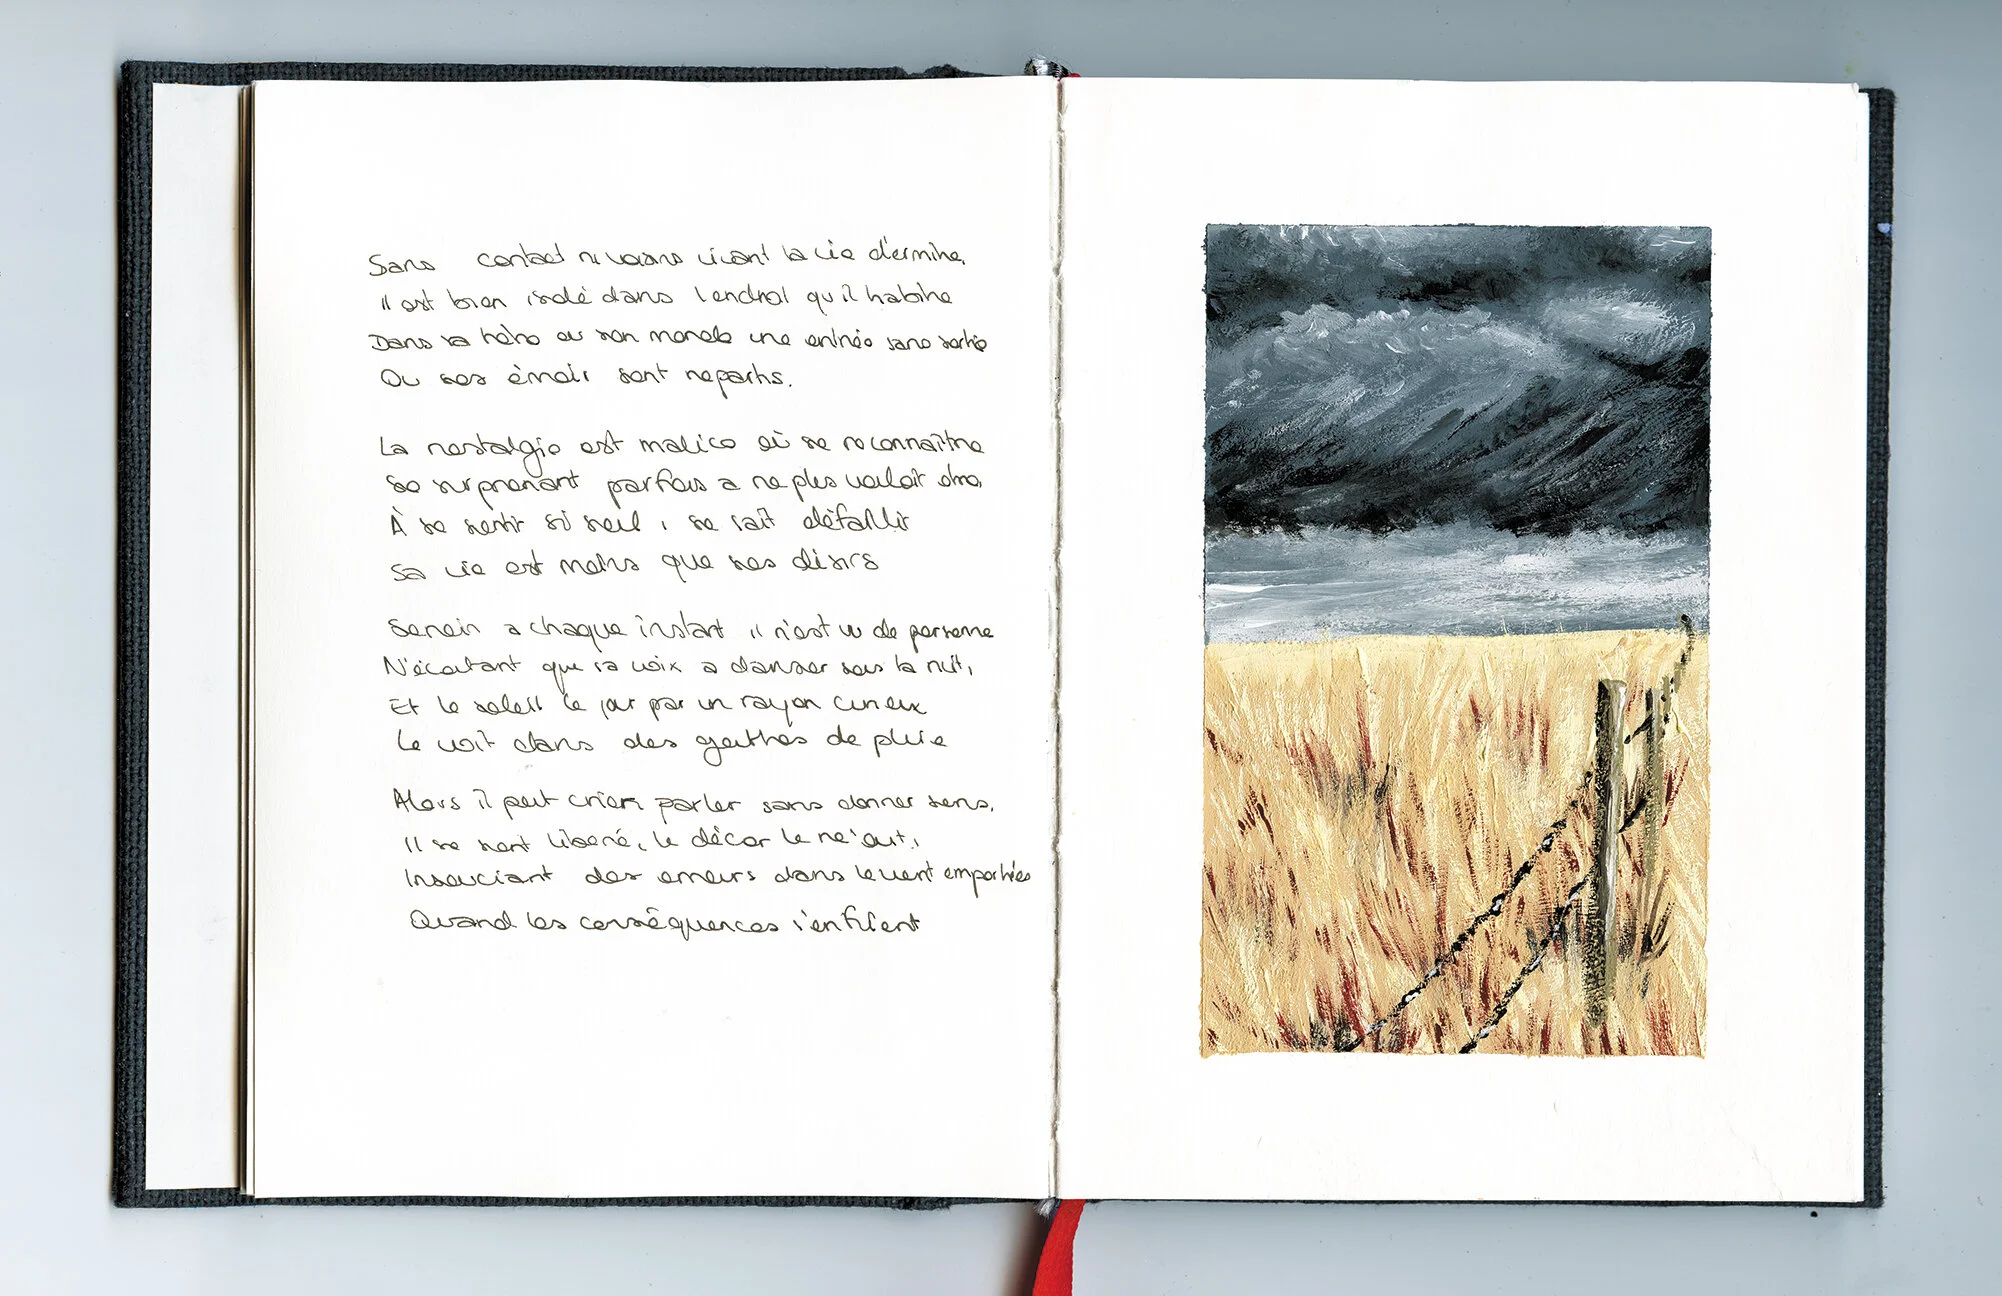 Sans contact ni voisins vivant la vie d'ermite,
Il est bien isolé dans l'endroit qu'il habite
Dans sa tête ou son monde une entrée sans sortie
Où ses émois sont repartis.
La nostalgie est malice où se reconnaître
Se surprenant parfois a ne plus vouloir être,
À se sentir si seul, se sait défaillir
Sa vie est moins que ses désirs
Serein a chaque instant il n'est vu de personne
N'écoutant que sa voix a danser sous la nuit,
Et le soleil le jour par un rayon curieux
Le voit dans des gouttes de pluie
Alors il peut crier, parler sans donner sens,
Il se sent libéré, le décor le
Insouciant des erreurs dans le vent emportées
Quand les conséquences s'enfuient